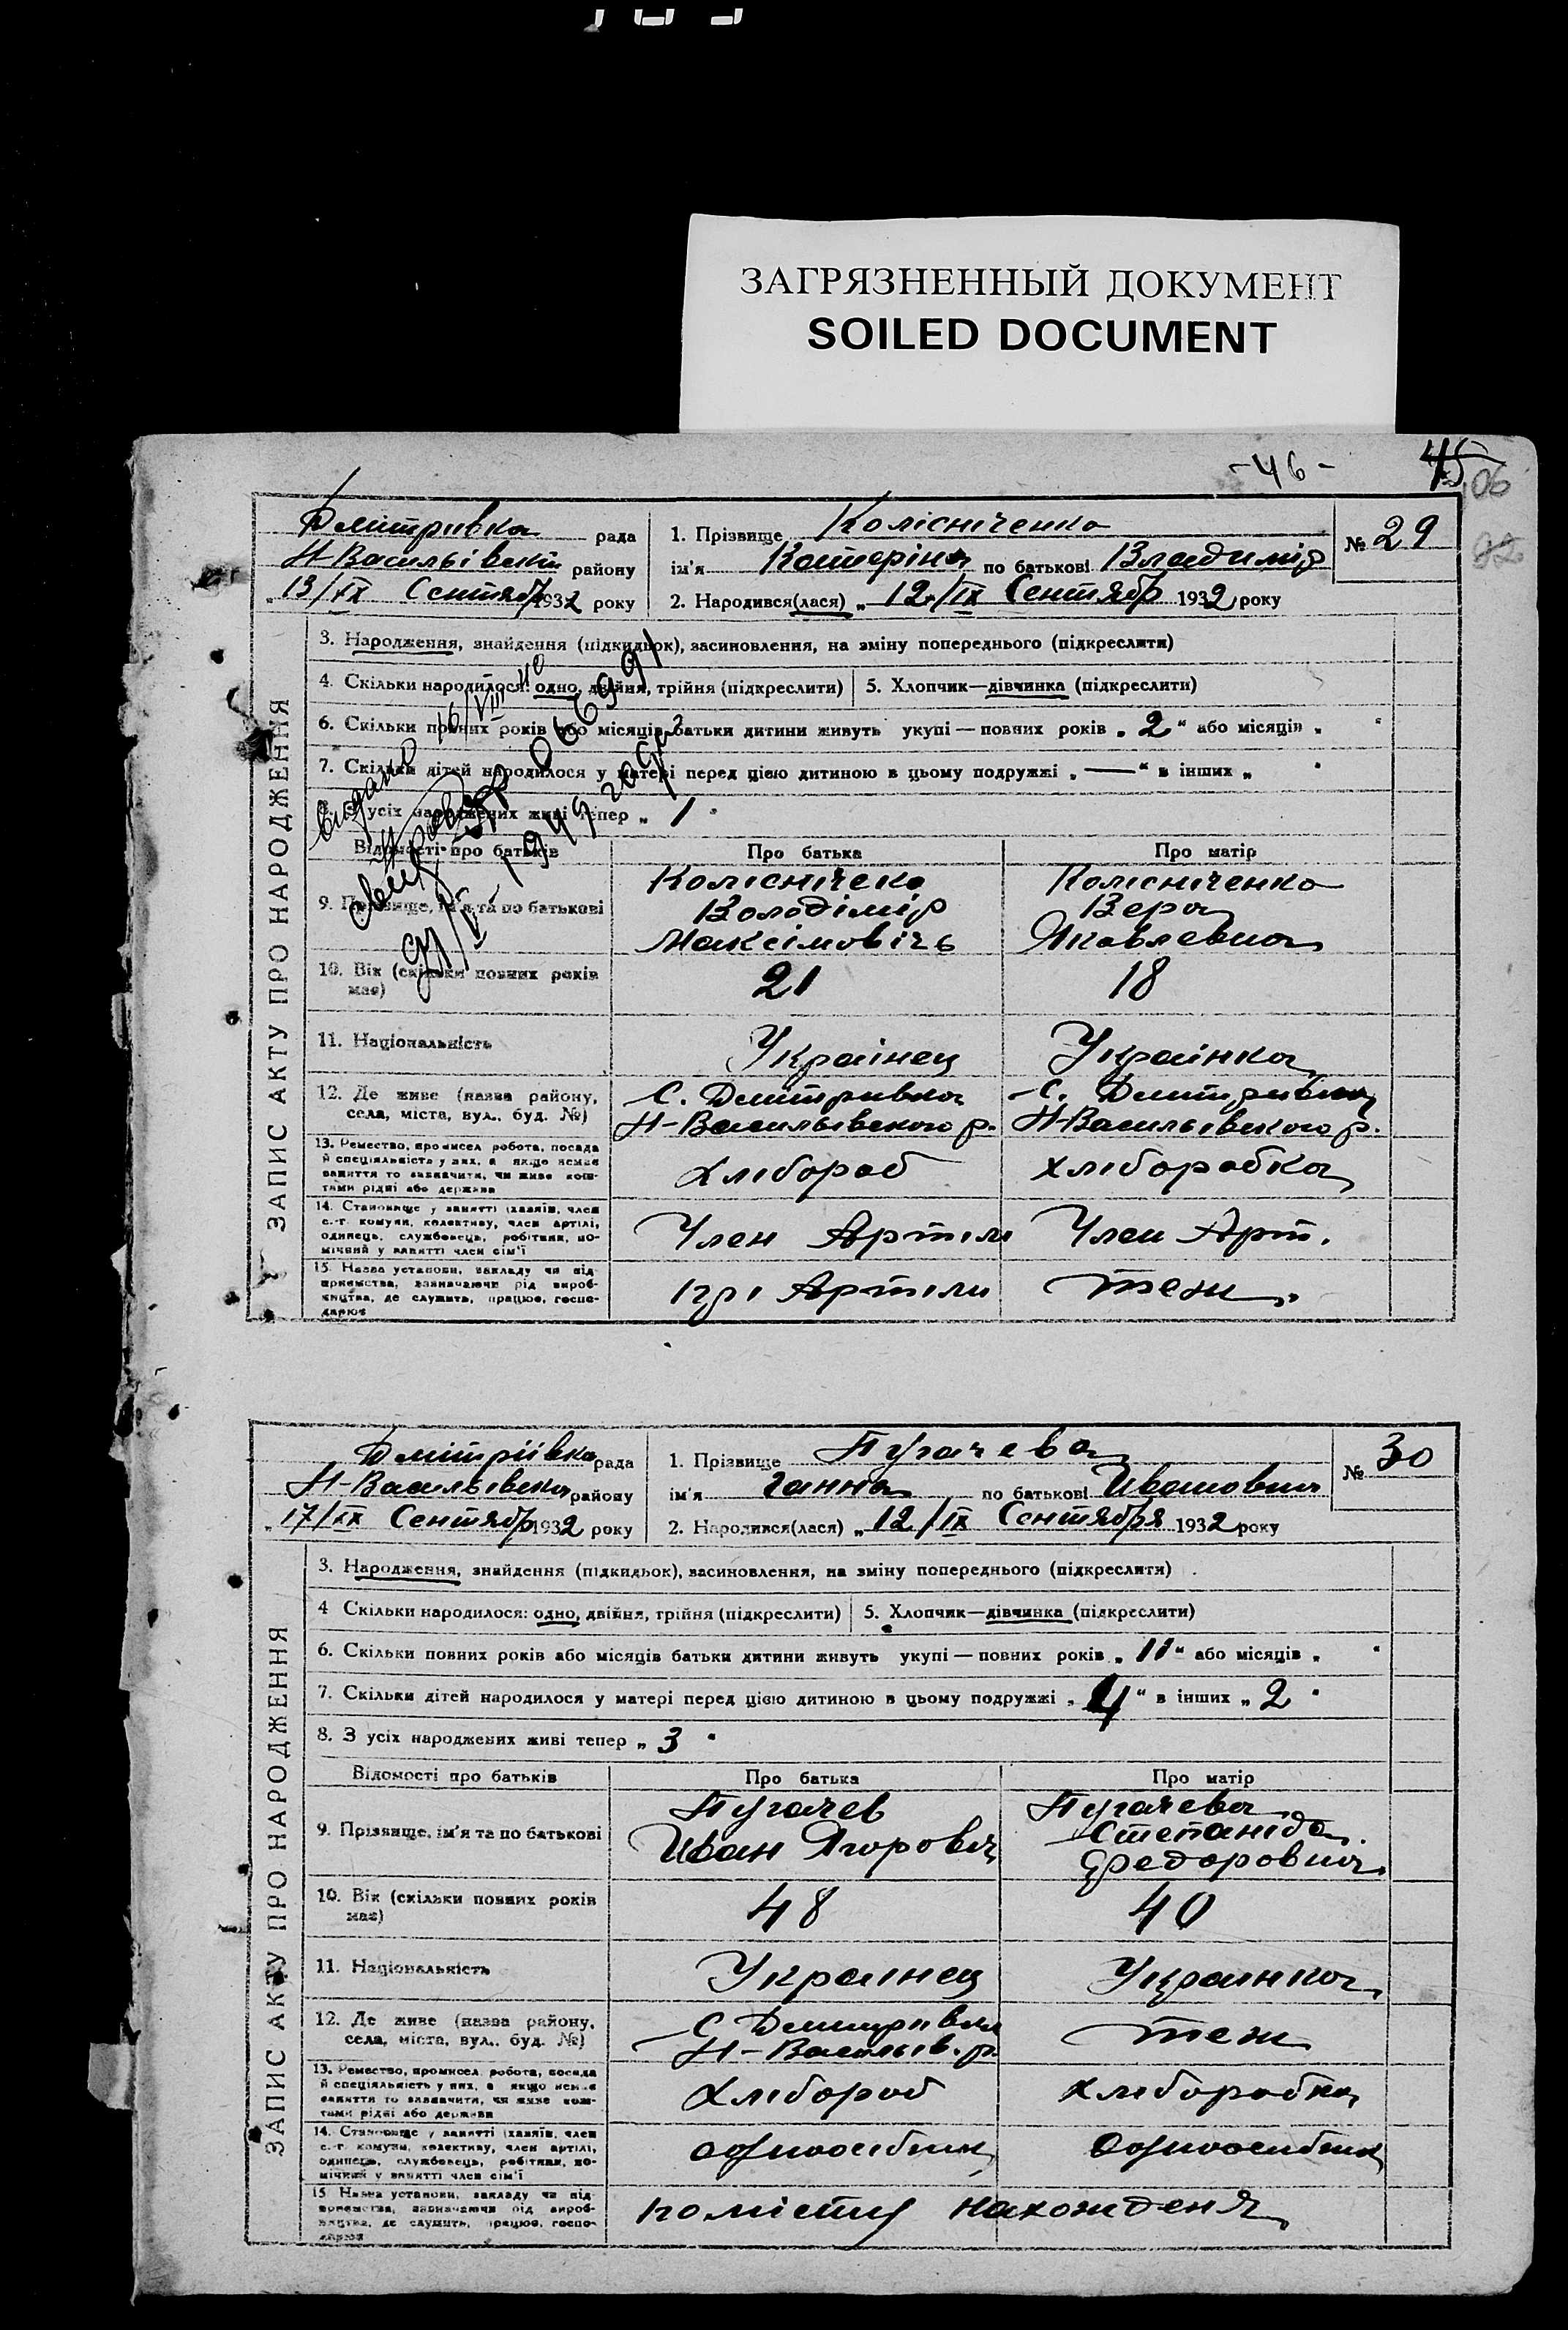 ЗАГРЯЗНЕННЫЙ ДОКУМЕНТ
SOILED DOCUMENT
-46-
45
106
ЗАПИС АКТУ ПРО НАРОДЖЕННЯ
Дмітривка рада
Н-Васильівский району
"13/IX Сентябр 1932 року
1. Прізвище Колісніченко
ім'я Катеріна по батькові Владимір
2. Народився(лася) „12/IX Сентябр 1932 року
№ 29
3. Народження, знайдення (підкидьок), засиновлення, на зміну попереднього (підкреслити)
4. Скільки народилося: одно, двійня, трійня (підкреслити)
5. Хлопчик—дівчинка (підкреслити)
6. Скільки повних років або місяців батьки дитини живуть укупі — повних років „2“ або місяців „ “
7. Скільки дітей народилося у матері перед цією дитиною в цьому подружжі „—“ в інших „ “
8. З усіх народжених живі тепер „1“
Видано 16/VIII 40
Відомості про батьків
Про батька
Про матір
9. Прізвище, ім'я та по батькові
Колісніченко
Володімір
Максімовічь
Колісніченко
Вера
Яковлевна
10. Вік (скільки повних років має)
21
18
11. Національність
Украінец
Украінка
12. Де живе (назва району,
села, міста, вул., буд. №)
С. Дмитривка
Н-Васильівского р.
С. Дмитривка
Н-Васильівского р.
13. Ремество, промисел робота, посада
й спеціяльність у них, а якщо немає
заняття то зазначити, чи живе кош-
тами рідні або держави
хлібороб
хліборобка
14. Становище у занятті (хазяїн, член
с.-г. комуни, колективу, член артілі,
одинець, службовець, робітник, по-
мічний у занятті член сім'ї
Член Артіли
Член Арт.
15. Назва установи, закладу чи під-
приємства, зазначаючи рід вироб-
ництва, де служить, працює, госпо-
дарює
прі Артіли
теж
ЗАПИС АКТУ ПРО НАРОДЖЕННЯ
Дмітріівка рада
Н-Васильівска району
„17/IX Сентябр 1932 року
1. Прізвище Пугачева
ім'я Ганна по батькові Ивановна
2. Народився(лася) „12/IX Сентября 1932 року
№ 30
3. Народження, знайдення (підкидьок), засиновлення, на зміну попереднього (підкреслити)
4 Скільки народилося: одно, двійня, трійня (підкреслити)
5. Хлопчик—дівчинка (підкреслити)
6. Скільки повних років або місяців батьки дитини живуть укупі — повних років „11“ або місяців „ “
7. Скільки дітей народилося у матері перед цією дитиною в цьому подружжі „4“ в інших „2“
8. З усіх народжених живі тепер „3“
Відомості про батьків
Про батька
Про матір
9. Прізвище, ім'я та по батькові
Пугачев
Иван Ягорович
Пугачева
Степаніда
Федоровна
10. Вік (скільки повних років має)
48
40
11. Національність
Украинец
Украинка
12. Де живе (назва району,
села, міста, вул., буд. №)
С Дмитривка
Н-Васильів. р.
теж
13. Ремество, промисел робота, посада
й спеціяльність у них, а якщо немає
заняття то зазначити, чи живе кош-
тами рідні або держави
хлібороб
хліборобка
14. Становище у занятті (хазяїн, член
с.-г. комуни, колективу, член артілі,
одинець, службовець, робітник, по-
мічний у занятті член сім'ї
односібник
односібник
15 Назва установи, закладу чи під-
приємства, зазначаючи рід вироб-
ництва, де служить, працює, госпо-
дарює
по місту нахожденя